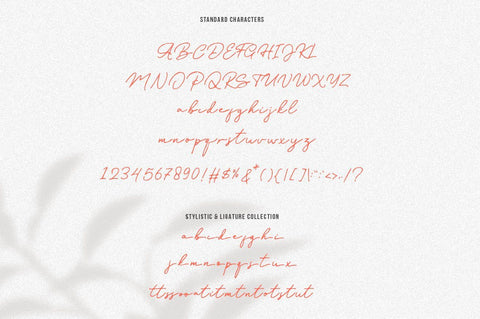 STANDARD CHARACTERS
ABCDEFGHIJKL
MNOPQRSTUVWXYZ
abcdefghijkl
mnopqrstuvwxyz
1234567890!#$%&*(){|[]\:";'<>.,/?
STYLISTIC & LIGATURE COLLECTION
abcdefghi
jkmnopqstux
ttssooatitmtntotstut